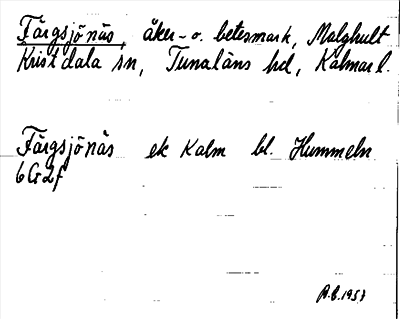 Färgsjönäs, åker- o. betesmark, Malghult
Kristdala sn, Tunaläns hd, Kalmar l.
Färgsjönäs ek Kalm bl. Hummeln
6G2f
A.B. 1957